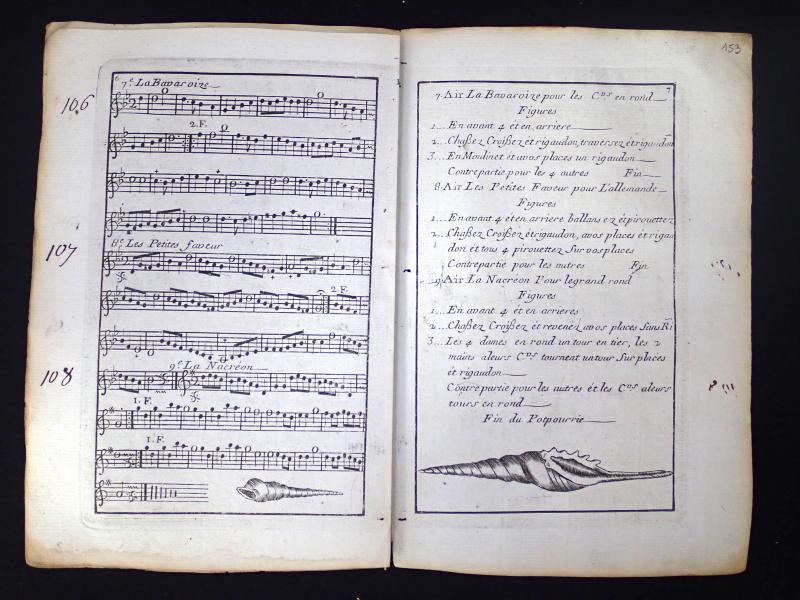 6
7.e La Bavaroize
106
2
2.F.
107
8.e Les Petites faveur
2.F.
9.e La Nacréon
108
1.F.
1.F.
153
7
7. Air La Bavaroize pour les C.ns en rond
Figures
1... En avant 4 et en arriere
2... Chaßez Croißez et rigaudon, traversez et rigaudon
3... En Moulinet et a vos places un rigaudon
Contrepartie pour les 4 autres Fin
8. Air Les Petites Faveur pour L'allemande
Figures
1... En avant 4 et en arriere ballansez et pirouettez
2... Chaßez Croißez et rigaudon, a vos places et rigau
don et tous 4 pirouettez Sur vos places
Contrepartie pour les autres Fin
9. Air La Nacréon Pour le grand rond
Figures
1... En avant 4 et en arrieres
2... Chaßez Croißez et revenez a vos places Sans Ri
3... Les 4 dames en rond un tour en tier, les 2
mains a leurs C.ns tournent un tour Sur places
et rigaudon
Contre partie pour les autres et les C.ns a leurs
tours en rond
Fin du Potpourrie